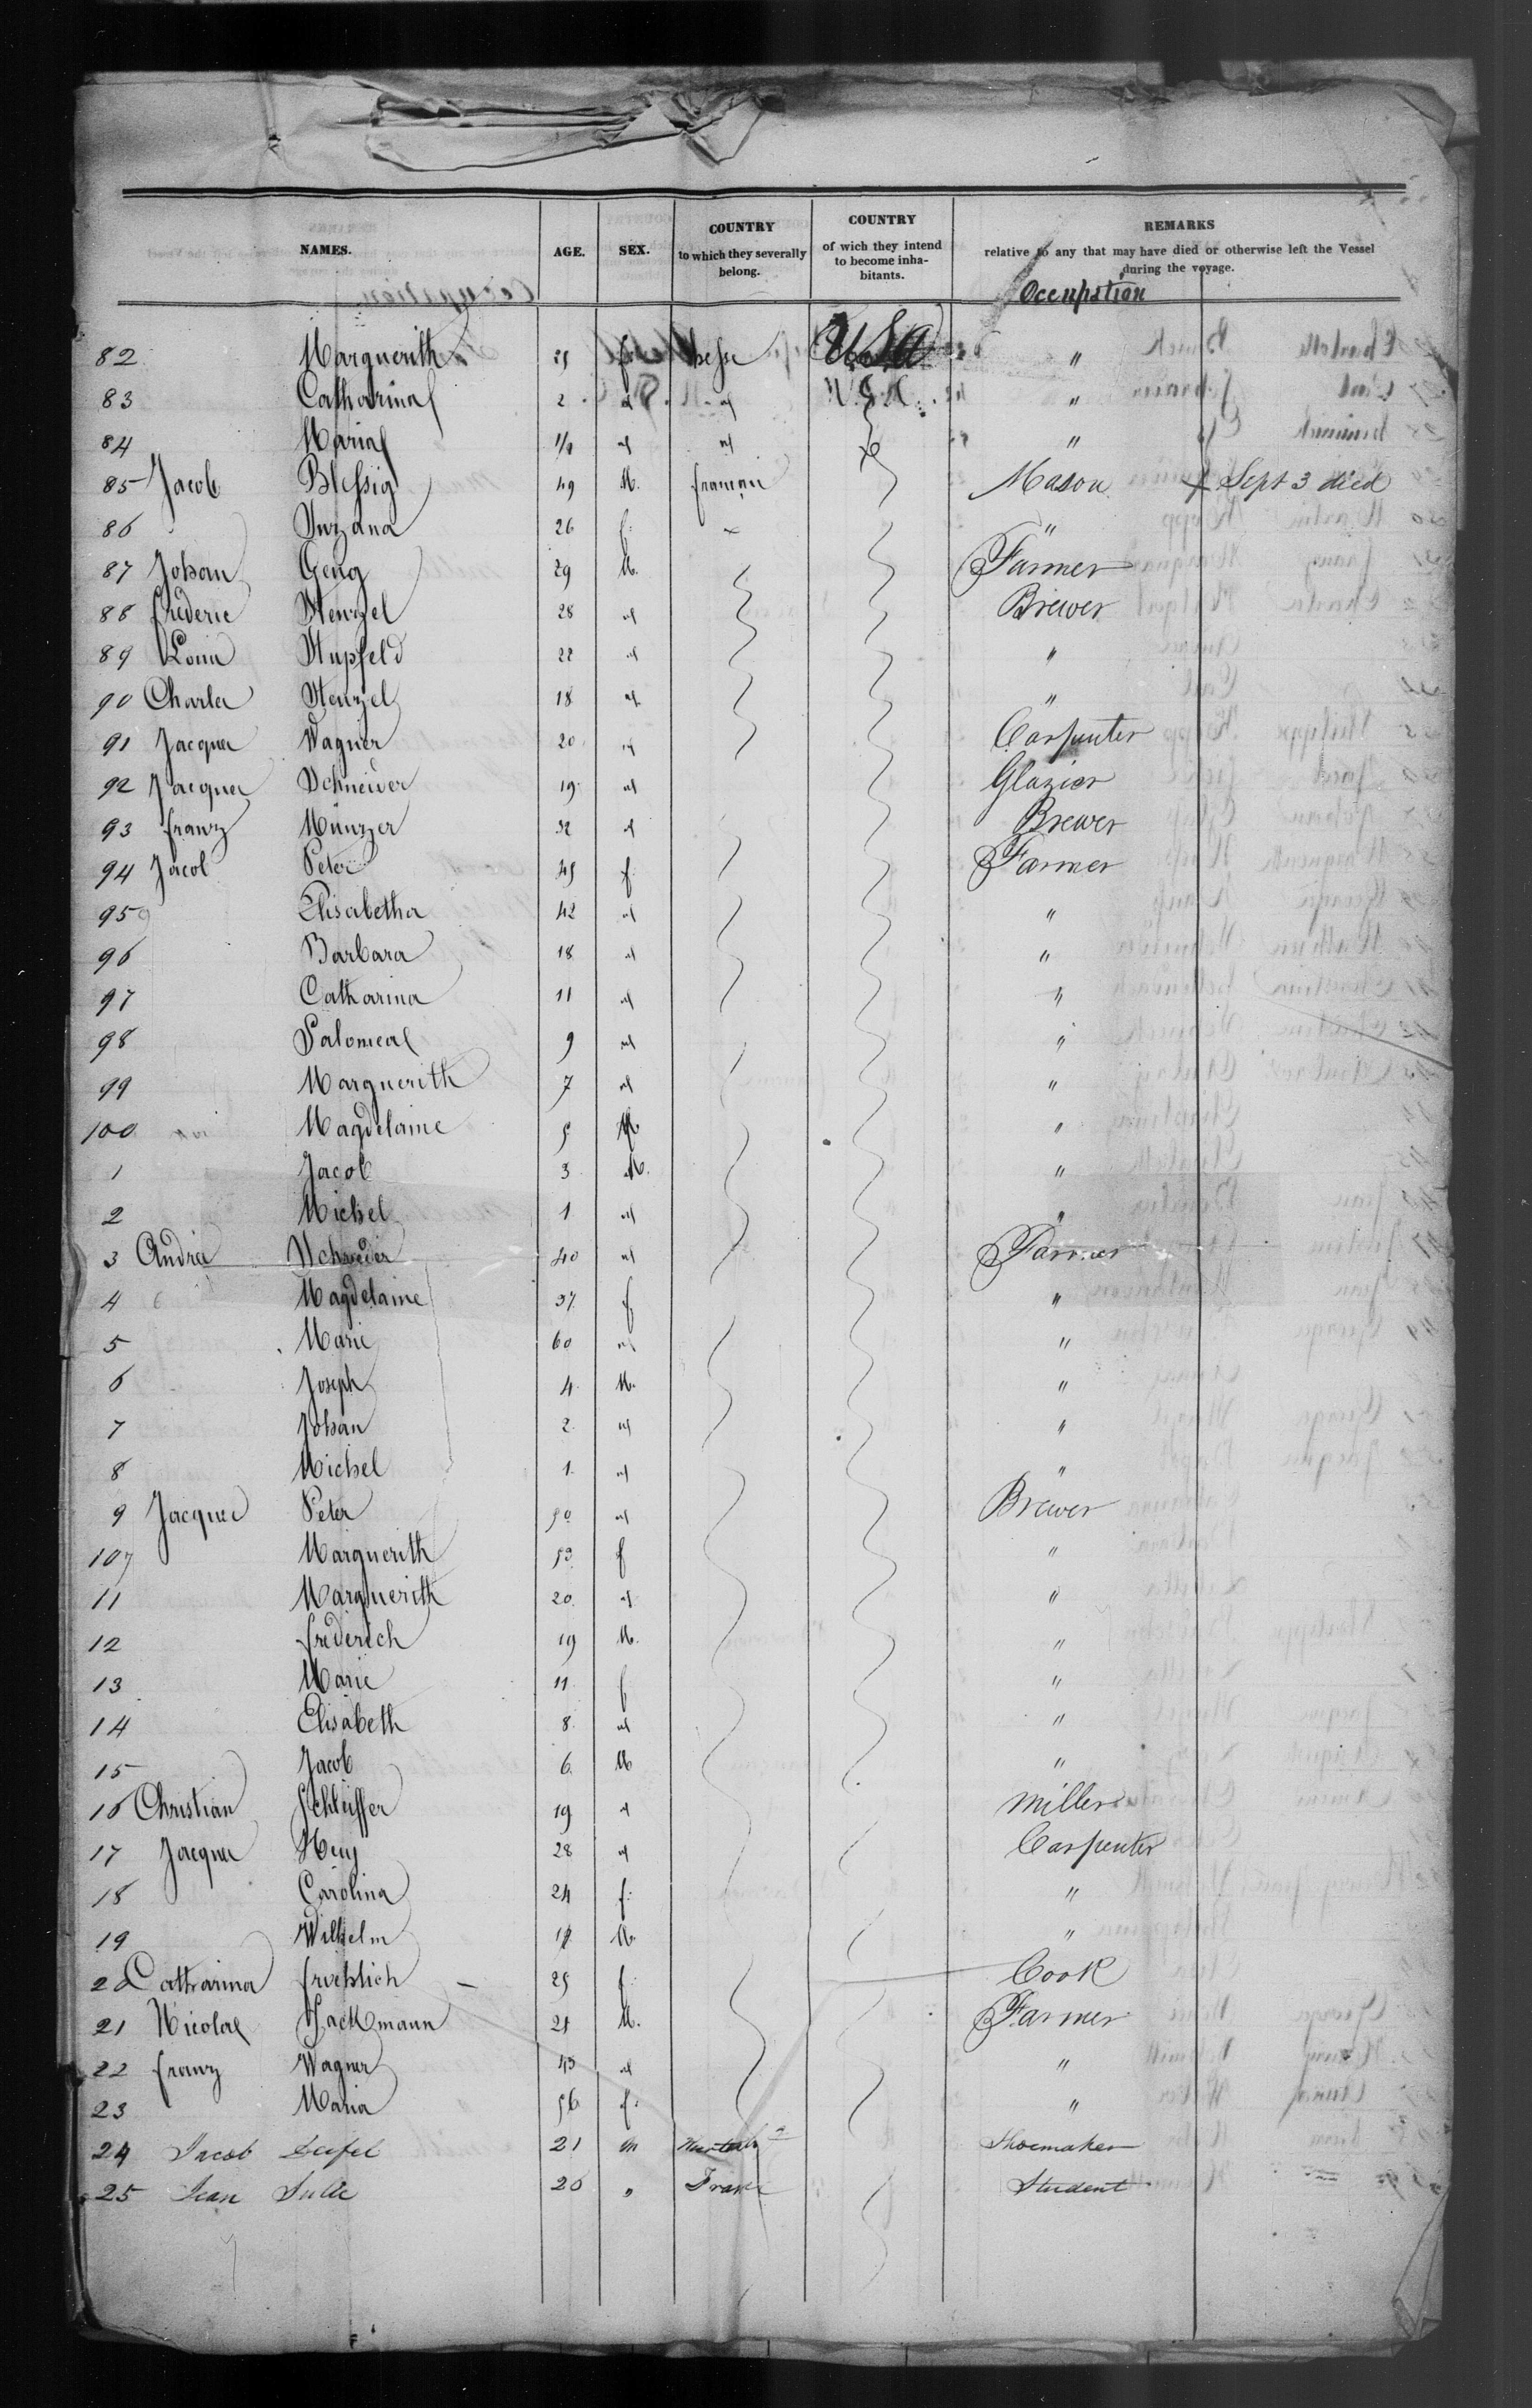 NAMES. AGE. SEX. COUNTRY to which they severally belong. COUNTRY of wich they intend to become inhabitants. REMARKS relative to any that may have died or otherwise left the Vessel during the voyage.
Occupation
82 Marguerith f. Hesse USA "
83 Catharina 2 " " U.S.A. "
84 Maria " " "
85 Jacob Blessig 49 M. Mason + Sept 3 died
86 Suzana 26 f. "
87 Johan Geng 29 M. Farmer
88 frederic Stenzel 28 " Brewer
89 Louis Hupfeld 22 " "
90 Charles Stenzel 18 " "
91 Jacques Wagner 20 " Carpenter
92 Jacques Schneider 19 " Glazier
93 franz Munzer 32 " Brewer
94 Jacob Peter 45 f. Farmer
95 Elisabetha 42 " "
96 Barbara 18 " "
97 Catharina 11 " "
98 Salomea 9 " "
99 Marguerith 7 " "
100 Magdelaine 5 "
1 Jacob 3 M. "
2 Michel 1 " "
3 André Schroeder 40 " Farmer
4 Magdelaine 37 f "
5 Marie 60 " "
6 Joseph 4 M. "
7 Johan 2 " "
8 Michel 1 " "
9 Jacques Peter 50 " Brewer
10 Marguerith 53 f "
11 Marguerith 20 " "
12 frederich 19 M. "
13 Marie 11 f "
14 Elisabeth 8 " "
15 Jacob 6 M "
16 Christian Schleiffer 19 " Miller
17 Jacques Huy 28 " Carpenter
18 Carolina 24 f. "
19 Wilhelm M. "
20 Catharina froehlich 25 f. Cook
21 Nicolas Hackmann 21 M. Farmer
22 franz Wagner 43 " "
23 Maria 56 f. "
24 Jacob Seufel 21 m Shoemaker
25 Jean Julie 20 " France Student